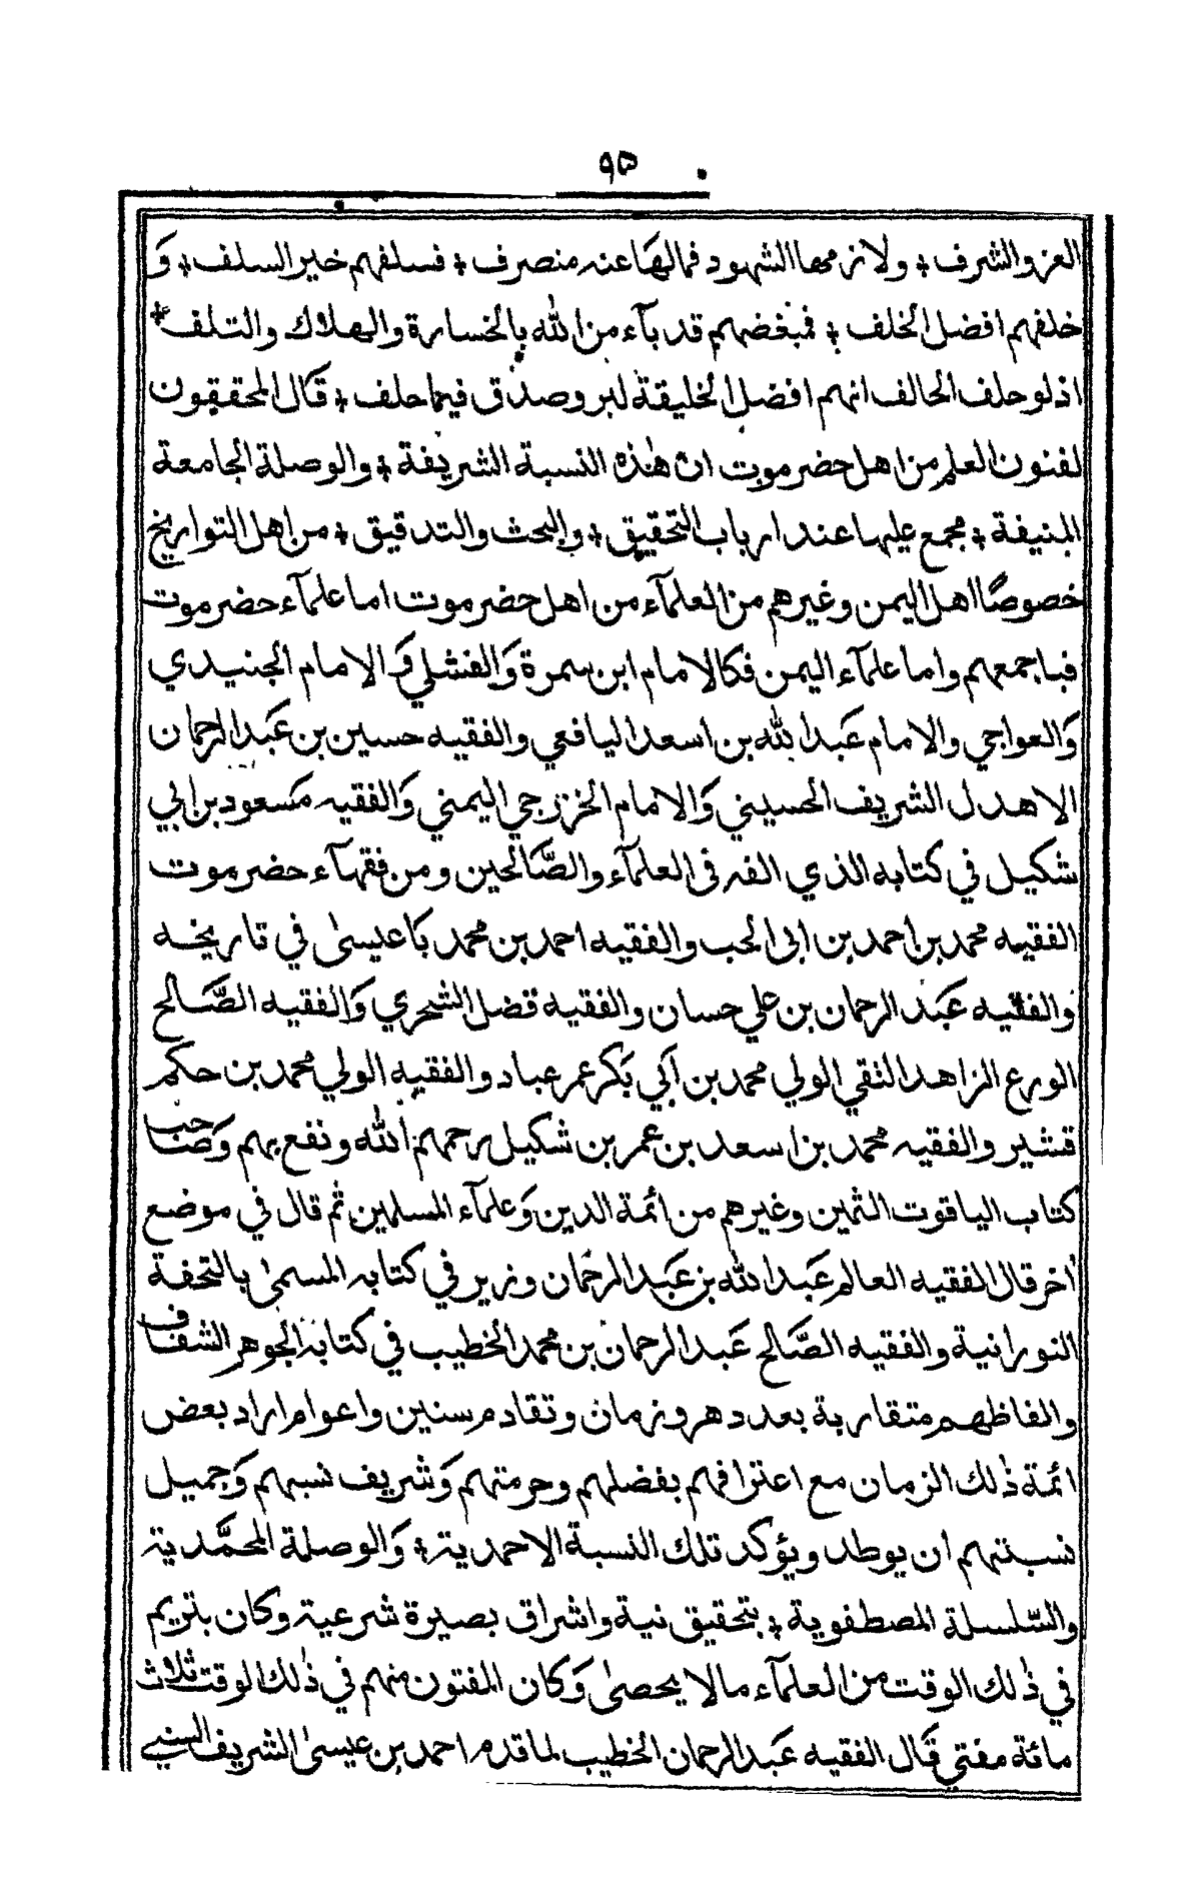 ٩٥
العز والشرف ٭ ولازمها الشهود فمالها عنه منصرف ٭ فسلفهم خير السلف ٭ وَ
خلفهم افضل الخلف ٭ فمبغضهم قد بآء من الله بالخسارة والهلاك والتلف ٭
اذ لو حلف الحالف انهم افضل الخليقة لبر وصدق فيما حلف ٭ قَال المحققون
لفنون العلم من اهل حضرموت ان هٰذه النسبة الشريفة ٭ والوصلة الجامعة
المنيفة ٭ مجمع عليها عند ارباب التحقيق ٭ والبحث والتدقيق ٭ من اهل التواريخ
خصوصًا اهل اليمن وغيرهم من العلمآء من اهل حضرموت اما علمآء حضرموت
فباجمعهم واما علمآء اليمن فكالامام ابن سمرة وَالفشلي وَ الامام الجنيدي
وَالعواجي والامام عَبد الله بن اسعد اليافعي والفقيه حسين بن عَبد الرحمان
الاهدل الشريف الحسيني وَالامام الخزرجي اليمني وَالفقيه مَسعود بن ابي
شكيل في كتابه الذي الفه فى العلمآء والصَّالحين ومن فقهآء حضرموت
الفقيه محمد بن احمد بن ابى الحب والفقيه احمد بن محمد بَاعيسىٰ في تاريخه
والفقيه عَبد الرحمان بن علي حسان والفقيه فضل الشحري وَالفقيه الصَّالح
الورع الزاهد التقي الولي محمد بن اَبي بَكر عمر عباد والفقيه الولي محمد بن حكم
قشير والفقيه محمد بن اسعد بن عمر بن شكيل رحمهم الله ونفع بهم وَصَاحب
كتاب الياقوت الثمين وغيرهم من ائمة الدين وَعلمآء المسلمين ثم قال في موضع
اٰخر قال الفقيه العالم عَبد الله بن عَبد الرحمان وزير في كتابه المسمىٰ بالتحفة
النورانية والفقيه الصَّالح عَبد الرحمان بن محمد الخطيب في كتابه الجوهر الشفاف
والفاظهم متقاربة بعد دهر وزمان وتقادم سنين واعوام اراد بعض
ائمة ذٰلك الزمان مع اعترافهم بفضلهم وحرمتهم وَشريف نسبهم وَجميل
نسبتهم ان يوطد ويؤكد تلك النسبة الاحمدية ٭ وَالوصلة المحمَّدية
والسّلسلة المصطفوية ٭ بتحقيق نية واشراق بصيرة شرعية وكان بتريم
في ذٰلك الوقت من العلمآء مالا يحصىٰ وَكان المفتون منهم في ذٰلك الوقت ثلاث
مائة مفتي قَال الفقيه عَبد الرحمان الخطيب لما قدم احمد بن عيسىٰ الشريف السني